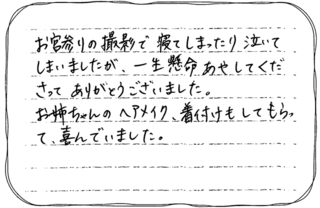 お宮参りの撮影で寝てしまったり泣いて
しまいましたが、一生懸命あやしてくだ
さってありがとうございました。
お姉ちゃんのヘアメイク、着付けもしてもらっ
て、喜んでいました。